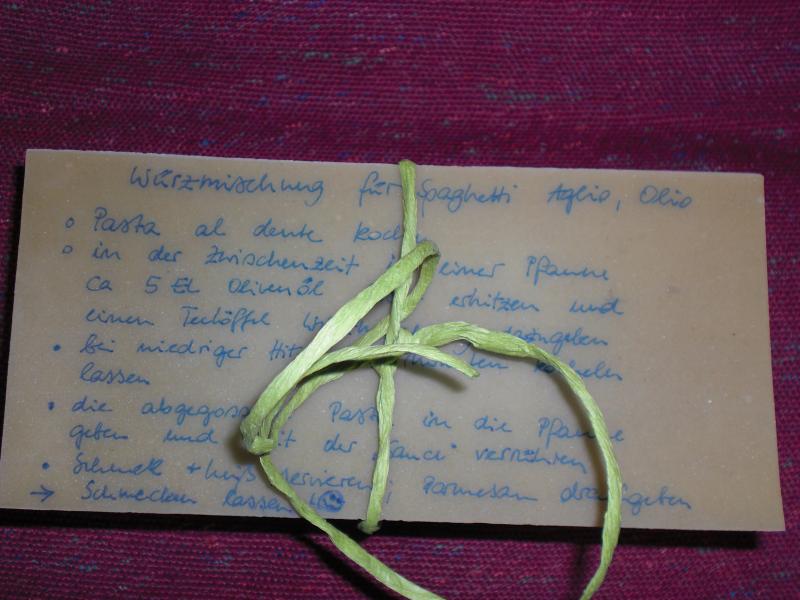 Würzmischung für Spaghetti Aglio, Olio
o Pasta al dente
o in der Zwischenzeit einer Pfanne
ca 5 EL Olivenöl erhitzen und
einen Teelöffel dazugeben
• bei niedriger köcheln
lassen
• die Pasta in die Pfanne
geben und der "Sauce" verrühren
• Schnell + heiß servieren, Parmesan draufgeben
→ Schmecken lassen